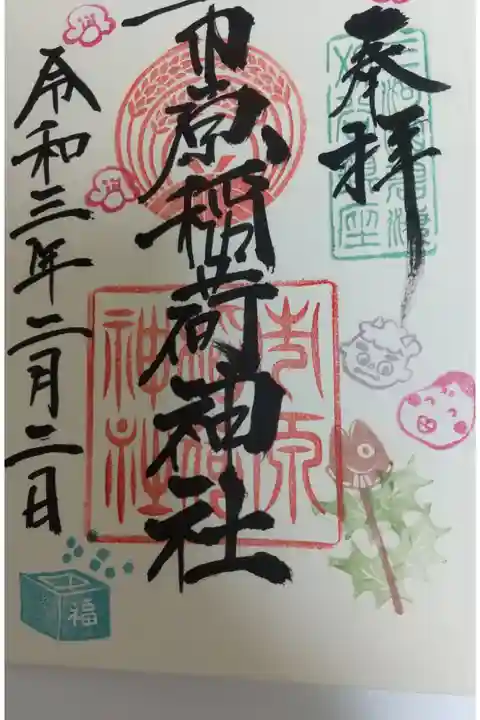 奉拝
市原稲荷神社
令和三年二月二日
市原稲荷神社
福